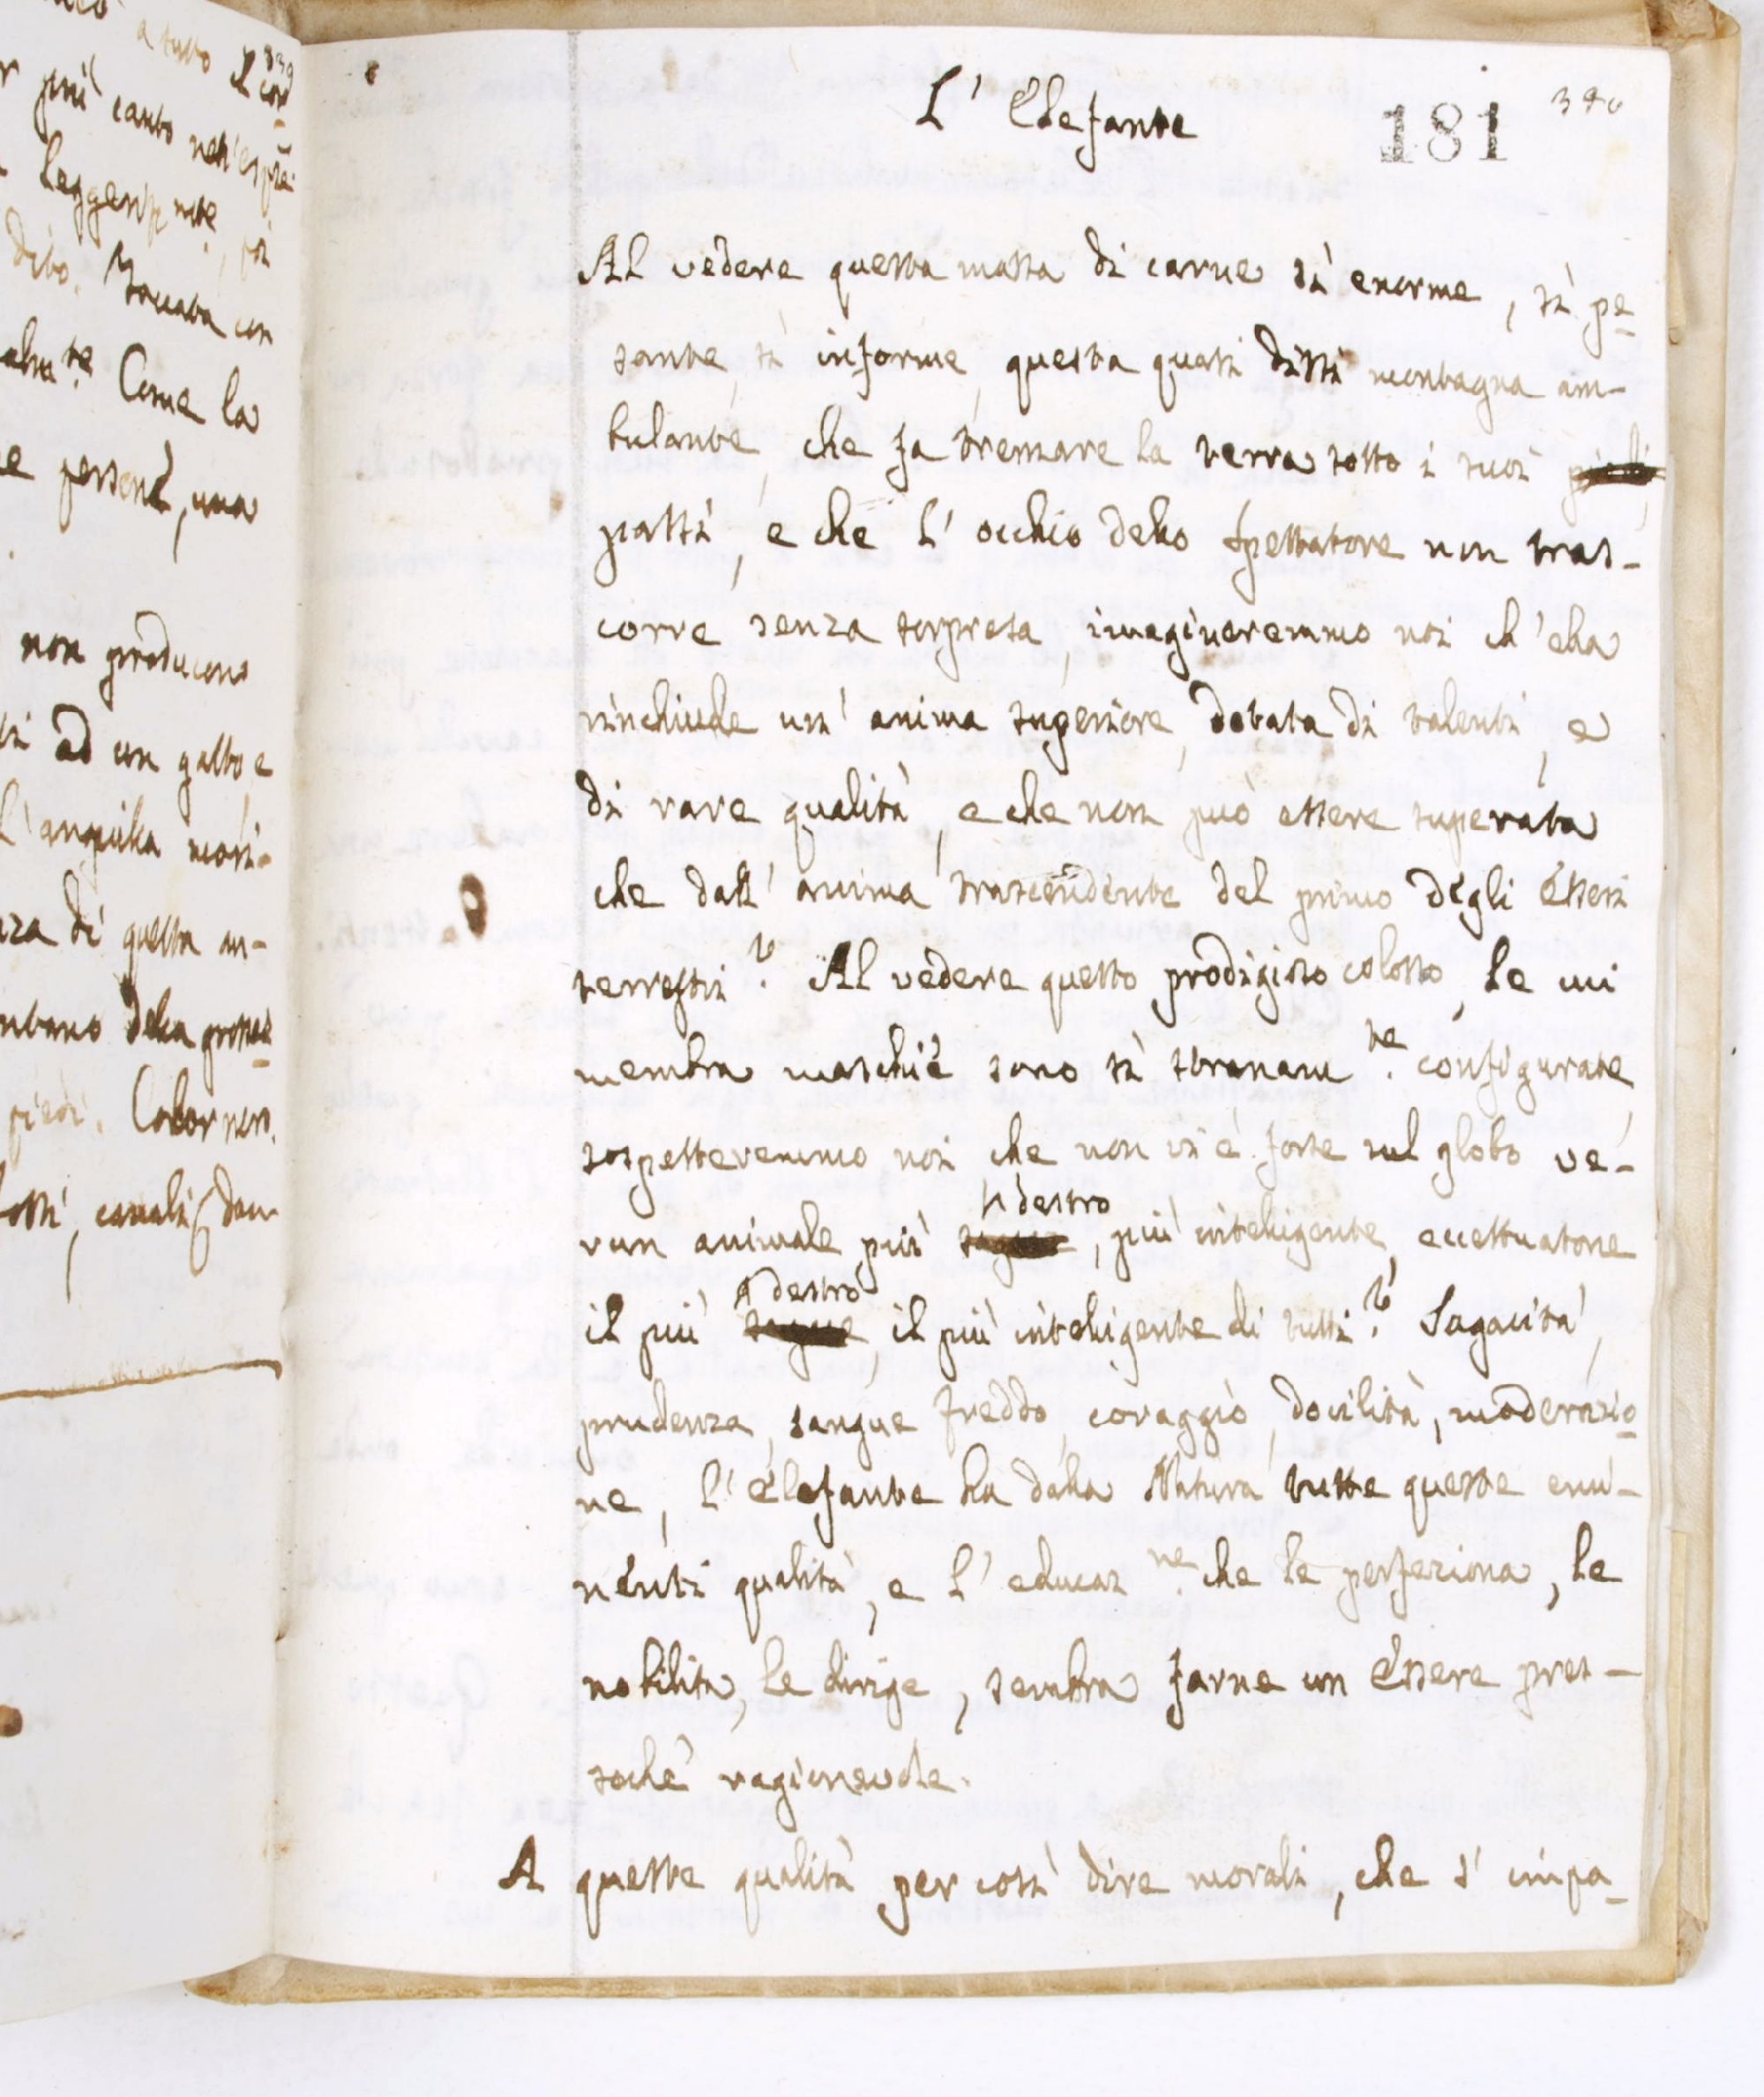 a tutto il cor
più canto nell'espre
leggerm.te, poi
dito. Toccata con
Come la
e persone, una
non producono
ti ad un gatto e
l'anguilla mori-
nza di questa an-
ntano della prosse
piedi.
canali, dan
L' Elefante
181
340
Al vedere questa massa di carne sì enorme, sì pe-
sante, sì informe, questa quasi dissi montagna am-
bulante, che fa tremare la terra sotto i suoi piedi
passi, e che l' occhio dello Spettatore non tras-
corre senza sorpresa, imagineremmo noi ch'ella
rinchiude un' anima superiore, dotata di talenti, e
di rare qualità, e che non può essere superata
che dall' anima trascendente del primo degli Esseri
terrestri? Al vedere questo prodigioso colosso, le cui
membra maschie sono sì stranam.te configurate
sospetteremmo noi che non vi è forse sul globo ve-
run animale più destro, più intelligente, eccettuatone
il più destro il più intelligente di tutti? Sagacità,
prudenza, sangue freddo, coraggio, docilità, moderazio-
ne, l' Elefante ha dalla Natura tutte queste emi-
nenti qualità, e l' educaz.ne che le perfeziona, le
nobilita, le dirige, sembra farne un Essere pres-
sochè ragionevole.
A queste qualità per così dire morali, che s' impa-